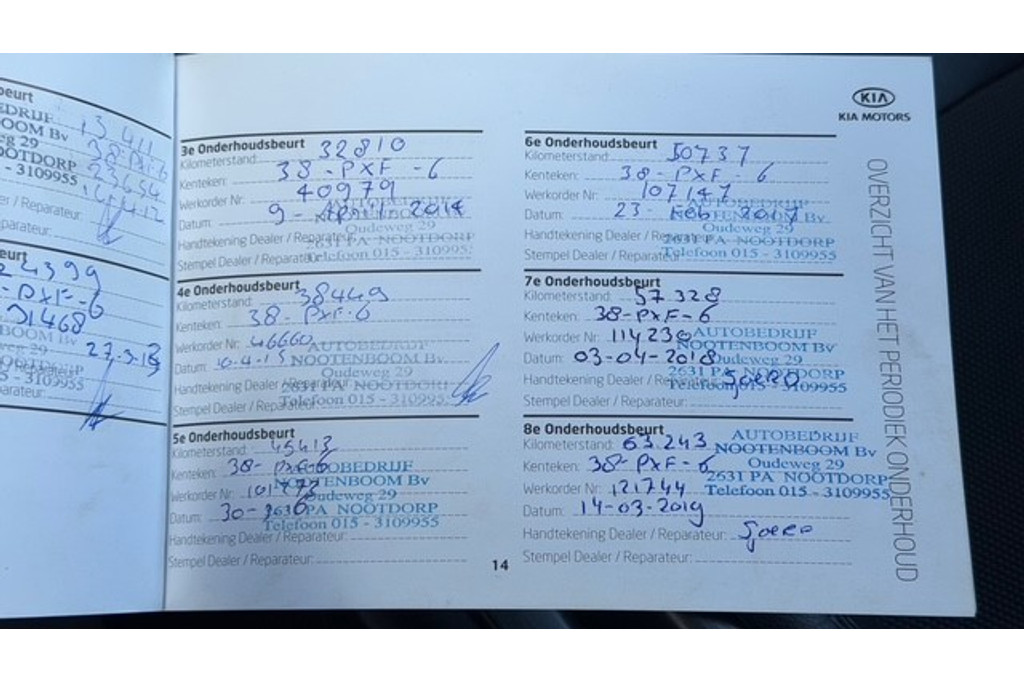 beurt
13411
EDRIJF
38-PXF-6
OOM Bv
23634
eg 29
OOTDORP
- 3109955
er / Reparateur:
parateur:
eurt
24399
-PXF-6
91468
BOOM Bv
27.3.13
weg 29
NOOTDORP
5 - 3109955
er / Reparateur:
parateur:
3e Onderhoudsbeurt
Kilometerstand: 32810
Kenteken: 38-PXF-6
Werkorder Nr: 40979
Datum: 9-April 2014
NOOTENBOOM Bv
Oudeweg 29
Handtekening Dealer / Reparateur:
2631 PA NOOTDORP
Stempel Dealer / Reparateur:
Telefoon 015 - 3109955
4e Onderhoudsbeurt
Kilometerstand: 38449
Kenteken: 38-PXF-6
Werkorder Nr: 46660
AUTOBEDRIJF
Datum: 10-4-15
NOOTENBOOM Bv.
Oudeweg 29
Handtekening Dealer / Reparateur:
2631 PA NOOTDORP
Stempel Dealer / Reparateur:
Telefoon 015 - 3109955
5e Onderhoudsbeurt
Kilometerstand: 45413
Kenteken: 38-PXF-6
AUTOBEDRIJF
NOOTENBOOM Bv
Werkorder Nr:
Oudeweg 29
Datum:
2631 PA NOOTDORP
Telefoon 015 - 3109955
Handtekening Dealer / Reparateur:
Stempel Dealer / Reparateur:
14
KIA
KIA MOTORS
OVERZICHT VAN HET PERIODIEK ONDERHOUD
6e Onderhoudsbeurt
Kilometerstand: 50737
Kenteken: 38-PXF-6
Werkorder Nr: 107147
AUTOBEDRIJF
Datum: 23-Feb 2017
NOOTENBOOM Bv.
Oudeweg 29
Handtekening Dealer / Reparateur:
2631 PA NOOTDORP
Stempel Dealer / Reparateur:
Telefoon 015 - 3109955
7e Onderhoudsbeurt
Kilometerstand: 57328
Kenteken: 38-PXF-6
Werkorder Nr: 114230
AUTOBEDRIJF
NOOTENBOOM Bv
Datum: 03-04-2018
Oudeweg 29
2631 PA NOOTDORP
Handtekening Dealer / Reparateur: Sjoerd
Telefoon 015 - 3109955
Stempel Dealer / Reparateur:
8e Onderhoudsbeurt
Kilometerstand: 63.243
AUTOBEDRIJF
NOOTENBOOM Bv
Kenteken: 38-PXF-6
Oudeweg 29
2631 PA NOOTDORP
Werkorder Nr: 121744
Telefoon 015 - 3109955
Datum: 14-03-2019
Handtekening Dealer / Reparateur: Sjoerd
Stempel Dealer / Reparateur: